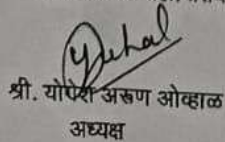 श्री. योगेश अरूण ओव्हाळ
अध्यक्ष